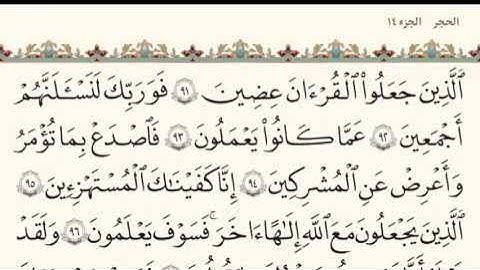 الحجر الجزء ١٤
ٱلَّذِينَ جَعَلُوا۟ ٱلْقُرْءَانَ عِضِينَ ٩١ فَوَرَبِّكَ لَنَسْـَٔلَنَّهُمْ
أَجْمَعِينَ ٩٢ عَمَّا كَانُوا۟ يَعْمَلُونَ ٩٣ فَٱصْدَعْ بِمَا تُؤْمَرُ
وَأَعْرِضْ عَنِ ٱلْمُشْرِكِينَ ٩٤ إِنَّا كَفَيْنَـٰكَ ٱلْمُسْتَهْزِءِينَ ٩٥
ٱلَّذِينَ يَجْعَلُونَ مَعَ ٱللَّهِ إِلَـٰهًا ءَاخَرَ ۚ فَسَوْفَ يَعْلَمُونَ ٩٦ وَلَقَدْ